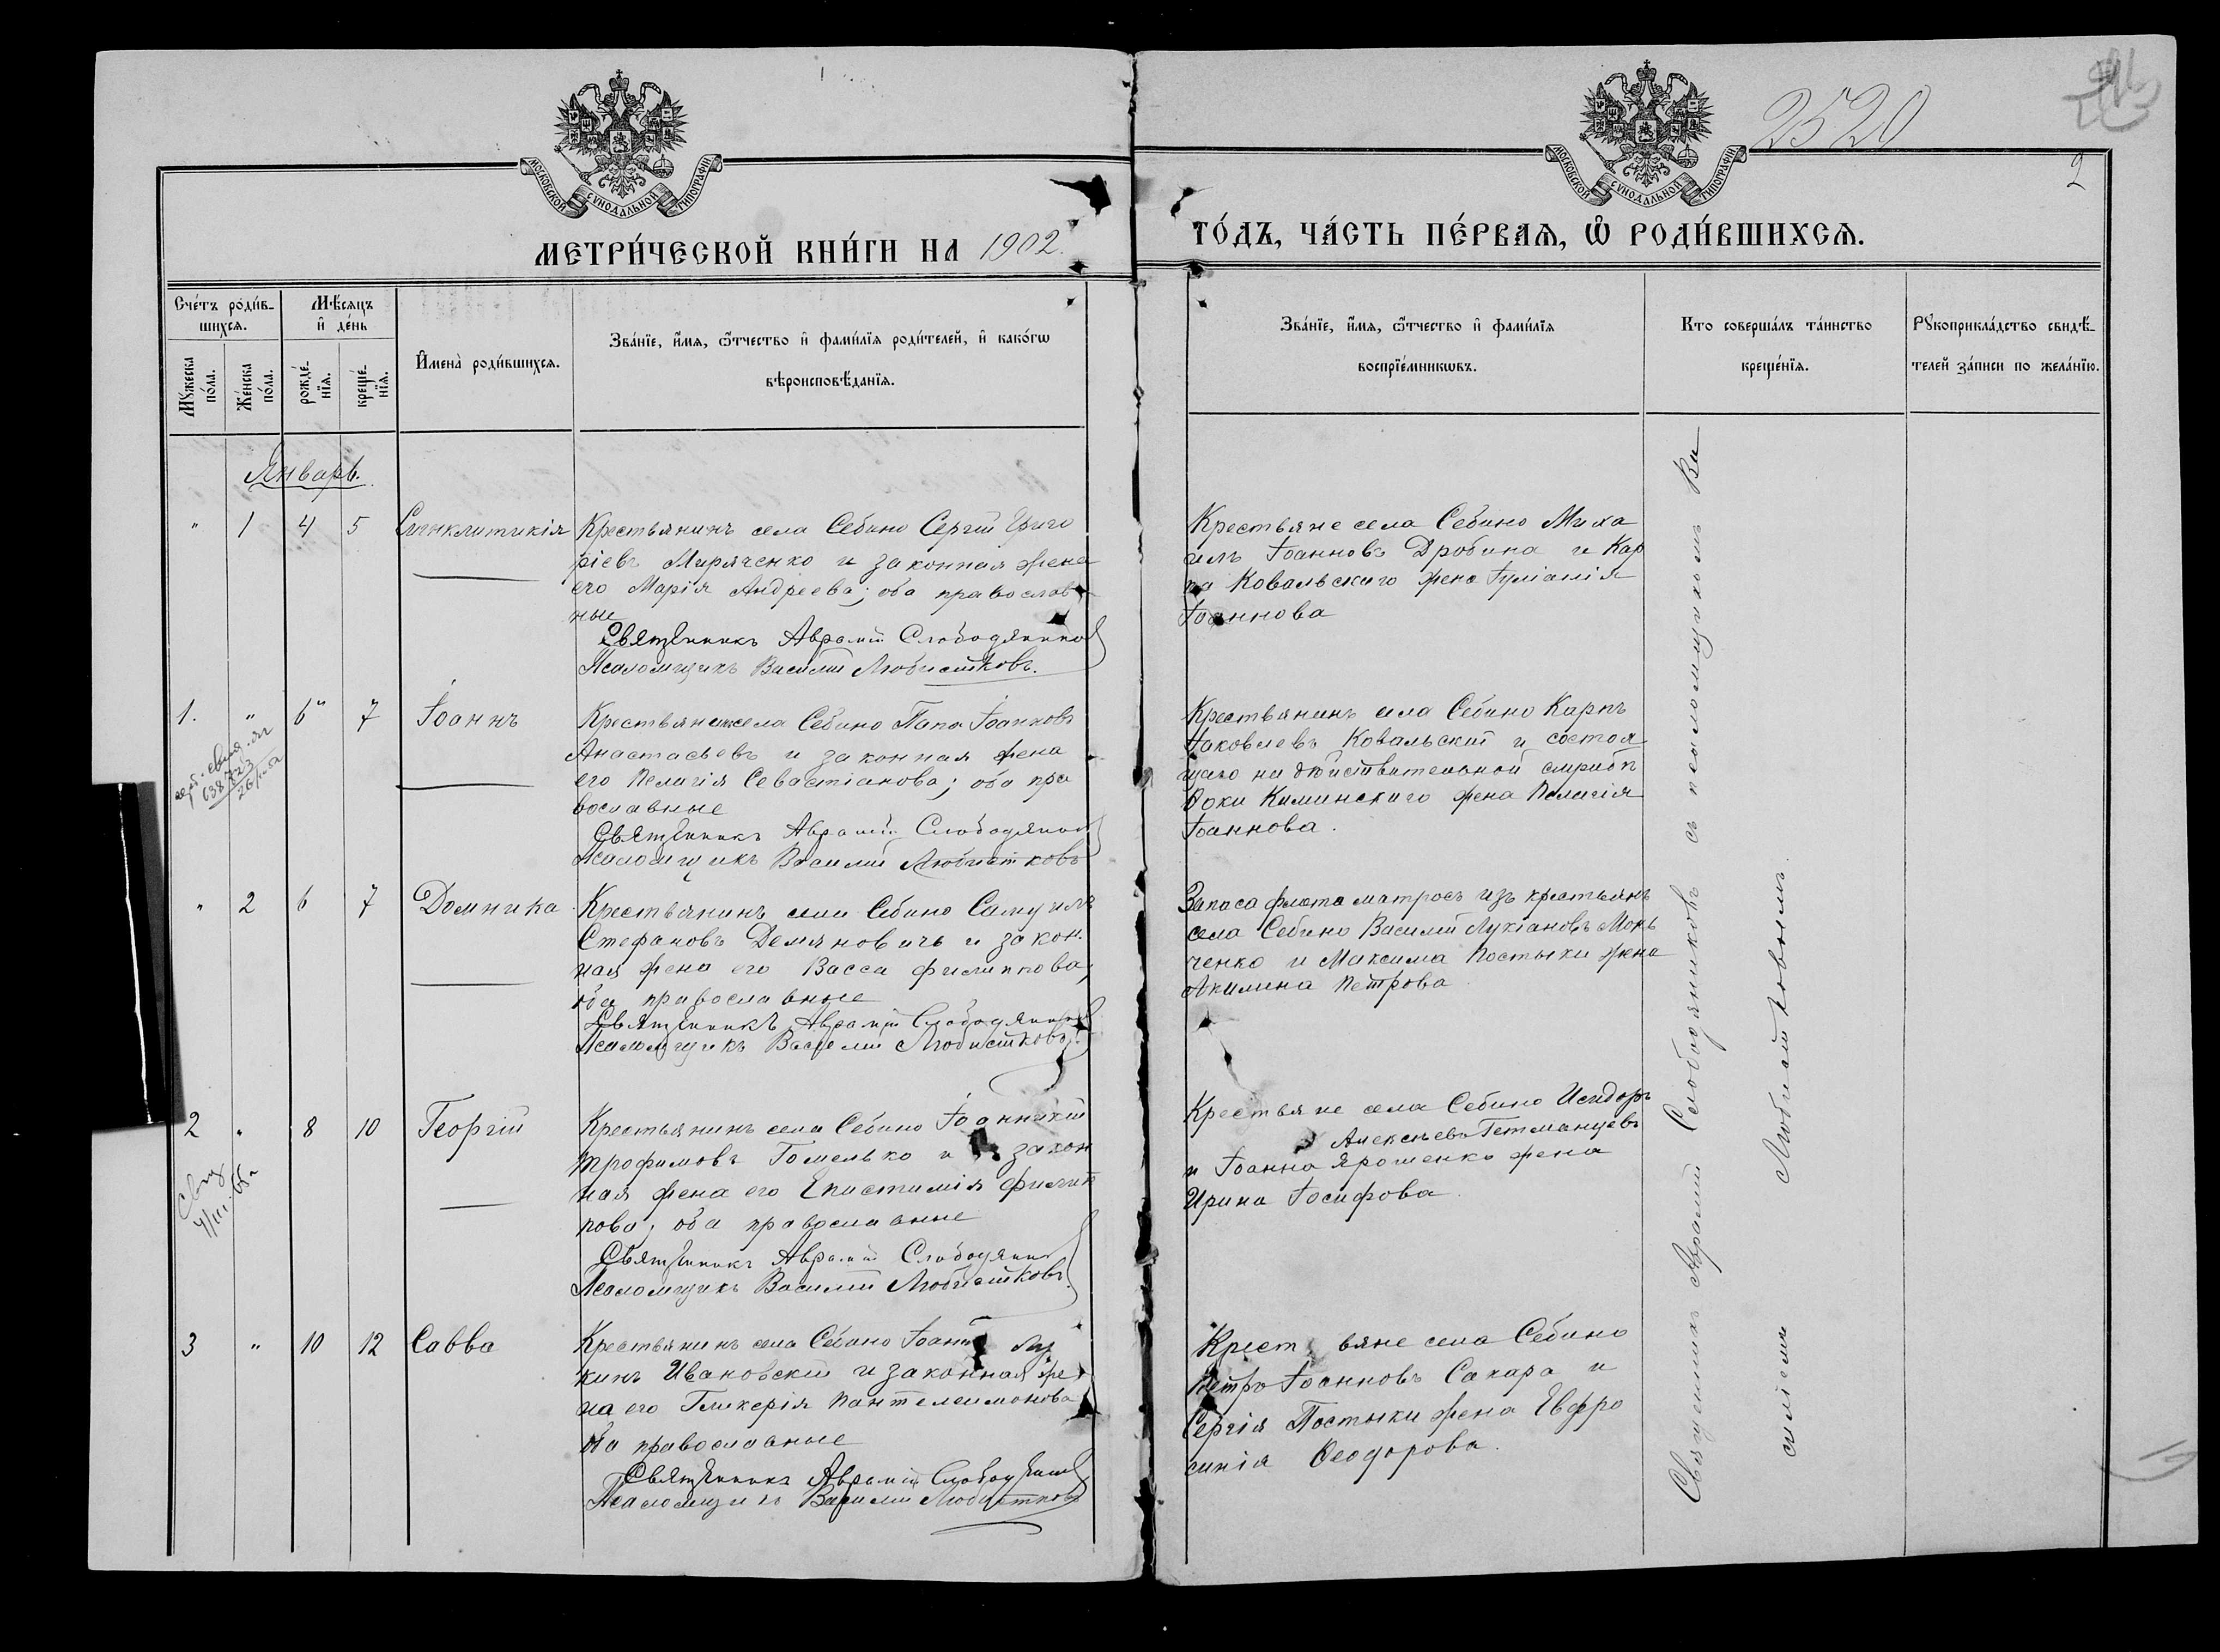 2520
2
МОСКОВСКОЙ СУНОДАЛЬНОЙ ТИПОГРАФІИ
МОСКОВСКОЙ СУНОДАЛЬНОЙ ТИПОГРАФІИ
МЕТРИ́ЧЕСКОЙ КНИ́ГИ НА 1902.
ГО́ДЪ, ЧА́СТЬ ПЕ́РВАѦ, Ѽ РОДИ́ВШИХСѦ.
Сче́тъ роди́в-
шихсѧ.
Мѣ́сѧцъ
и҆ де́нь
Мꙋ́жеска по́ла.
Же́нска по́ла.
рожде́-нїѧ.
креще́-нїѧ.
И҆мена̀ роди́вшихсѧ.
Зва́нїе, и҆́мѧ, ѻ҆́тчество и҆ фами́лїѧ роди́телей, и҆ како́гѡ
вѣроисповѣ́данїѧ.
Зва́нїе, и҆́мѧ, ѻ҆́тчество и҆ фами́лїѧ
воспрїе́мникѡвъ.
Кто соверша́лъ та́инство
креще́нїѧ.
Рꙋкоприкла́дство свидѣ́-
телей за́писи по жела́нїю.
Январь.
" 1 4 5 Синклитикія
Крестьянинъ села Себино Сергій Григо
ріевъ Миряченко и законная жена
его Марія Андреева; оба православ
ные
Священникъ Аврамій Слободяников
Псаломщикъ Василій Любистковъ.
Крестьяне села Себино Миха
илъ Іоанновъ Дробина и Кар
па Ковальскаго жена Іуліанія
Іоаннова
1. " 6 7 Іоаннъ
638723
Крестьянинъ села Себино Папа Іоанновъ
Анастасьевъ и законная жена
его Пелагія Севастіанова; оба пра
вославные
Священникъ Аврамій Слободяников
Псаломщикъ Василій Любистковъ
Крестьянинъ села Себино Карпъ
Іаковлевъ Ковальскій и состоя
щаго на дѣйствительной службѣ
Фоки Каминскаго жена Пелагія
Іоаннова.
" 2 6 7 Домника
Крестьянинъ села Себино Самуилъ
Стефановъ Демяновичъ и закон-
ная жена его Васса Филиппова;
оба православные
Священникъ Аврамій Слободяников
Псаломщикъ Василій Любистковъ.
Запаса флота матросъ изъ крестьянъ
села Себино Василій Лукіановъ Мон
ченко и Максима Постыки жена
Акилина Петрова
2 " 8 10 Георгій
4/III.65
Крестьянинъ села Себино Іоанникій
Трофимовъ Гомелько и закон
ная жена его Епистимія Филип
пова; оба православные
Священникъ Аврамій Слободяников
Псаломщикъ Василій Любистковъ.
Крестьяне села Себино Исидоръ
Алексѣевъ Гетманцевъ
и Іоанна Ярошенко жена
Ирина Іосифова.
3 " 10 12 Савва
Крестьянинъ села Себино Іоаннъ Лу
кинъ Ивановскій и законная же
на его Гликерія Пантелеимонова
оба православные
Священникъ Аврамій Слободяников
Псаломщикъ Василій Любистковъ
Крестьяне села Себино
Петръ Іоанновъ Сахара и
Сергія Постыки жена Евфро
синія Феодорова.
Священникъ Аврамій Слободяниковъ съ псаломщикомъ Ва
силіемъ Любистковымъ.